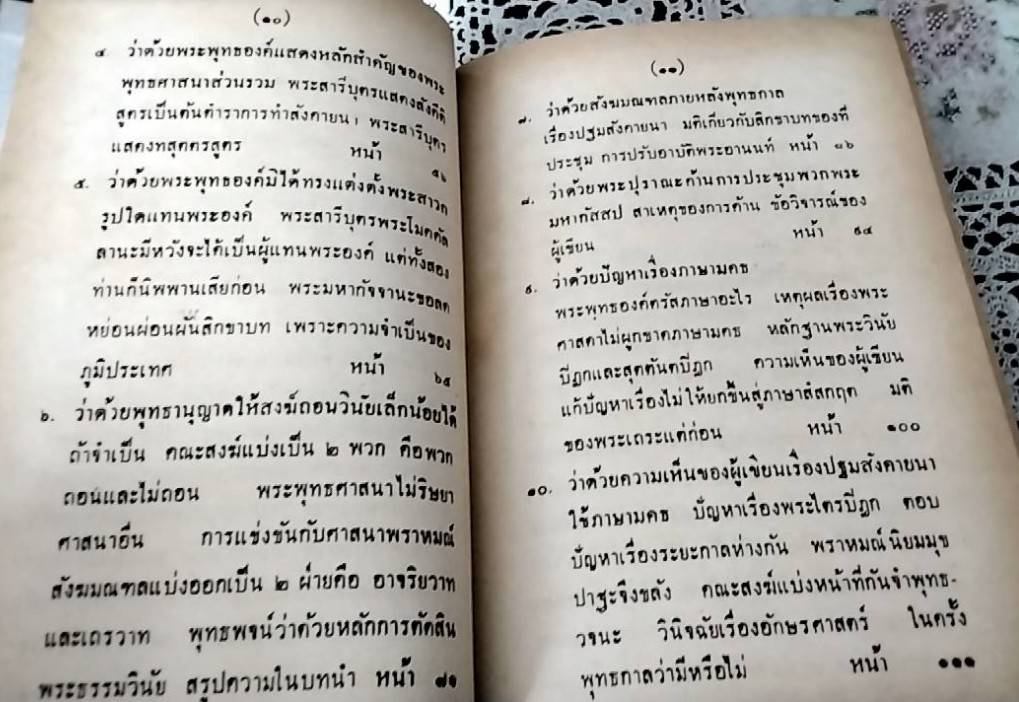 (๑๐)
๔ ว่าด้วยพระพุทธองค์แสดงหลักสำคัญของพระ
พุทธศาสนาส่วนรวม พระสารีบุตรแสดงสังคีติ
สูตรเป็นต้นตำราการทำสังคายนา พระสารีบุตร
แสดงทสุตตรสูตร หน้า ๕๖
๕. ว่าด้วยพระพุทธองค์มิได้ทรงแต่งตั้งพระสาวก
รูปใดแทนพระองค์ พระสารีบุตรพระโมคคัล
ลานะมีหวังจะได้เป็นผู้แทนพระองค์ แต่ทั้งสอง
ท่านก็นิพพานเสียก่อน พระมหากัจจานะขอลด
หย่อนผ่อนผันสิกขาบท เพราะความจำเป็นของ
ภูมิประเทศ หน้า ๖๕
๖. ว่าด้วยพุทธานุญาตให้สงฆ์ถอนวินัยเล็กน้อยได้
ถ้าจำเป็น คณะสงฆ์แบ่งเป็น ๒ พวก คือพวก
ถอนและไม่ถอน พระพุทธศาสนาไม่ริษยา
ศาสนาอื่น การแข่งขันกับศาสนาพราหมณ์
สังฆมณฑลแบ่งออกเป็น ๒ ฝ่ายคือ อาจริยวาท
และเถรวาท พุทธพจน์ว่าด้วยหลักการตัดสิน
พระธรรมวินัย สรุปความในบทนำ หน้า ๗๑
(๑๑)
๗. ว่าด้วยสังฆมณฑลภายหลังพุทธกาล
เรื่องปฐมสังคายนา มติเกี่ยวกับสิกขาบทของที่
ประชุม การปรับอาบัติพระอานนท์ หน้า ๘๖
๘. ว่าด้วยพระปุราณะค้านการประชุมพวกพระ
มหากัสสป สาเหตุของการค้าน ข้อวิจารณ์ของ
ผู้เขียน หน้า ๙๔
๙. ว่าด้วยปัญหาเรื่องภาษามคธ
พระพุทธองค์ตรัสภาษาอะไร เหตุผลเรื่องพระ
ศาสดาไม่ผูกขาดภาษามคธ หลักฐานพระวินัย
ปิฎกและสุตตันตปิฎก ความเห็นของผู้เขียน
แก้ปัญหาเรื่องไม่ให้ยกขึ้นสู่ภาษาสํสกฤต มติ
ของพระเถระแต่ก่อน หน้า ๑๐๐
๑๐. ว่าด้วยความเห็นของผู้เขียนเรื่องปฐมสังคายนา
ใช้ภาษามคธ ปัญหาเรื่องพระไตรปิฎก ตอบ
ปัญหาเรื่องระยะกาลห่างกัน พราหมณ์นิยมมุข
ปาฐะจึงขลัง คณะสงฆ์แบ่งหน้าที่กันจำพุทธ-
วจนะ วินิจฉัยเรื่องอักษรศาสตร์ ในครั้ง
พุทธกาลว่ามีหรือไม่ หน้า ๑๑๑